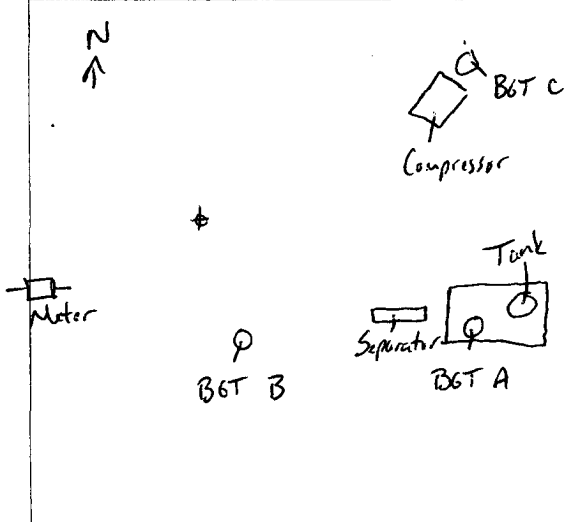 N
BGT C
Compressor
Tank
Meter
Separator
BGT B
BGT A